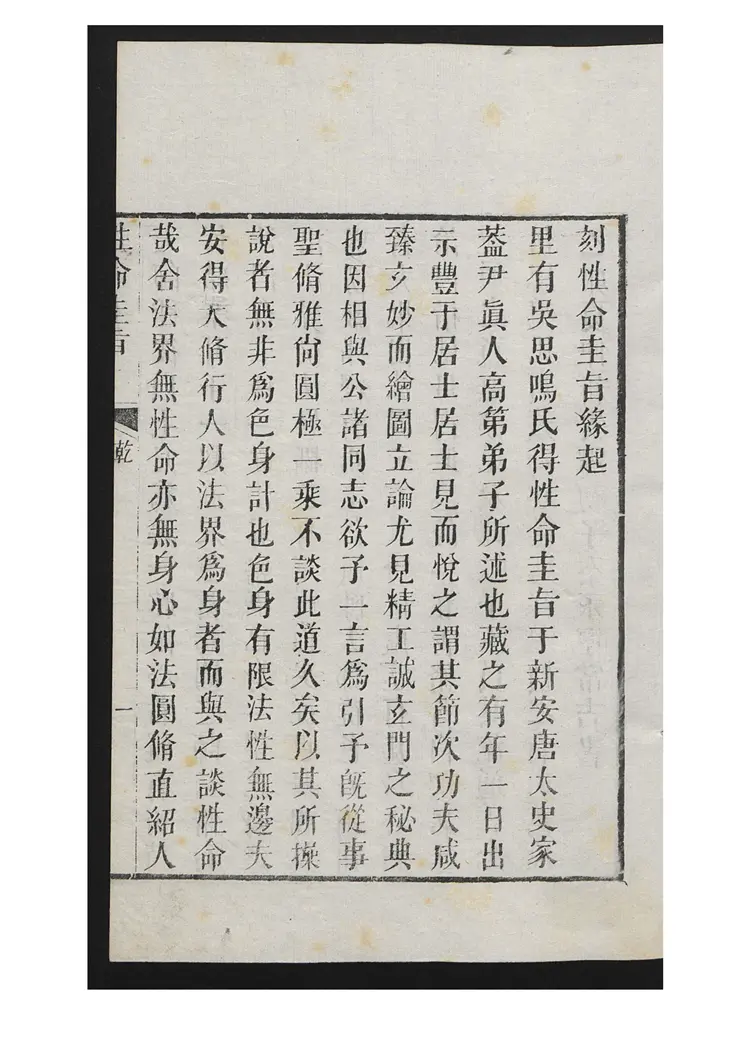 刻性命圭旨緣起
里有吳思鳴氏得性命圭旨于新安唐太史家
葢尹眞人高第弟子所述也藏之有年一日出
示豐于居士居士見而悅之謂其節次功夫咸
臻玄妙而繪圖立論尤見精工誠玄門之秘典
也因相與公諸同志欲予一言爲引予旣從事
聖脩雅尙圓極一乘不談此道久矣以其所操
說者無非爲色身計也色身有限法性無邊夫
安得大脩行人以法界爲身者而與之談性命
哉舍法界無性命亦無身心如法圓脩直紹人
性命圭旨
乾
一